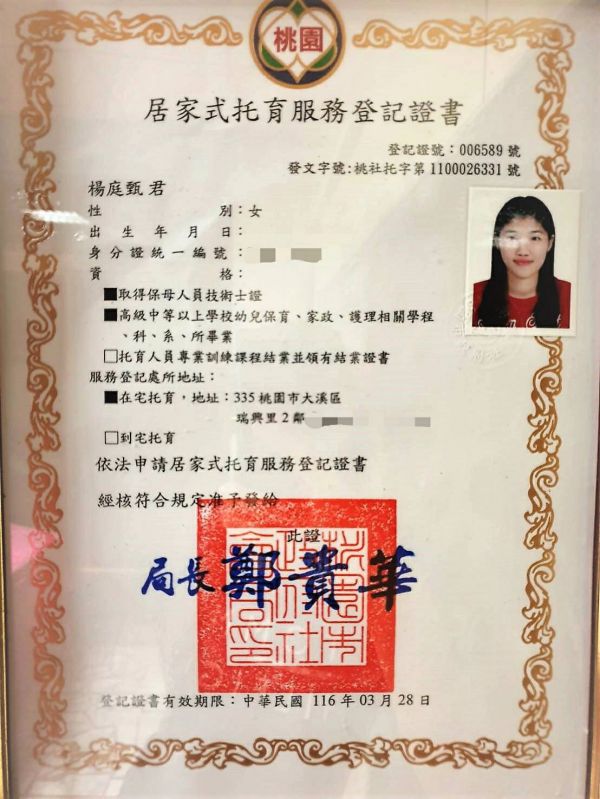 桃園
居家式托育服務登記證書
登記證號：006589 號
發文字號：桃社托字第 1100026331 號
楊庭甄 君
性別：女
出生年月日：
身分證統一編號：
資格：
■取得保母人員技術士證
■高級中等以上學校幼兒保育、家政、護理相關學程
、科、系、所畢業
□托育人員專業訓練課程結業並領有結業證書
服務登記處所地址：
■在宅托育，地址：335 桃園市大溪區
瑞興里 2 鄰
□到宅托育
依法申請居家式托育服務登記證書
經核符合規定准予發給
此證
局長 鄭貴華
登記證書有效期限：中華民國 116 年 03 月 28 日